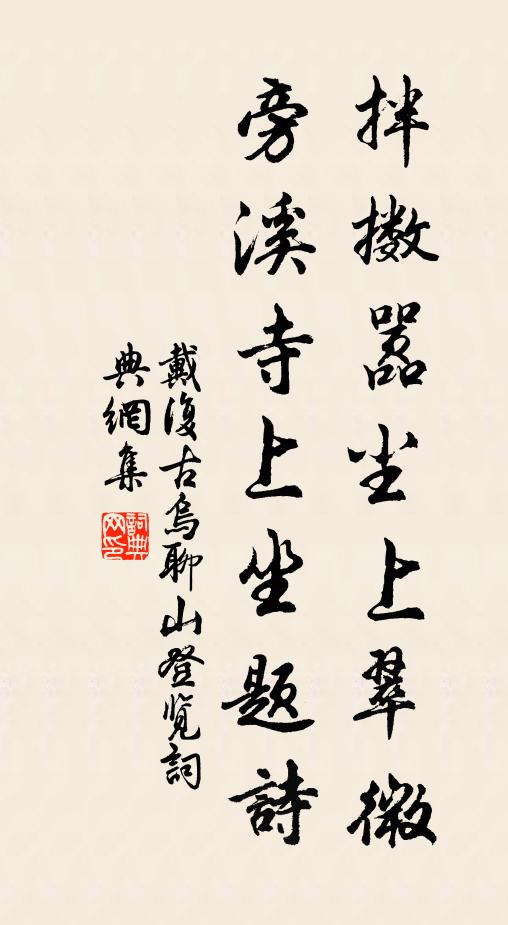 拌擞嚣尘上翠微
旁溪寺上坐题詩
戴復古烏聊山登览詞
典網集
詞典
网印